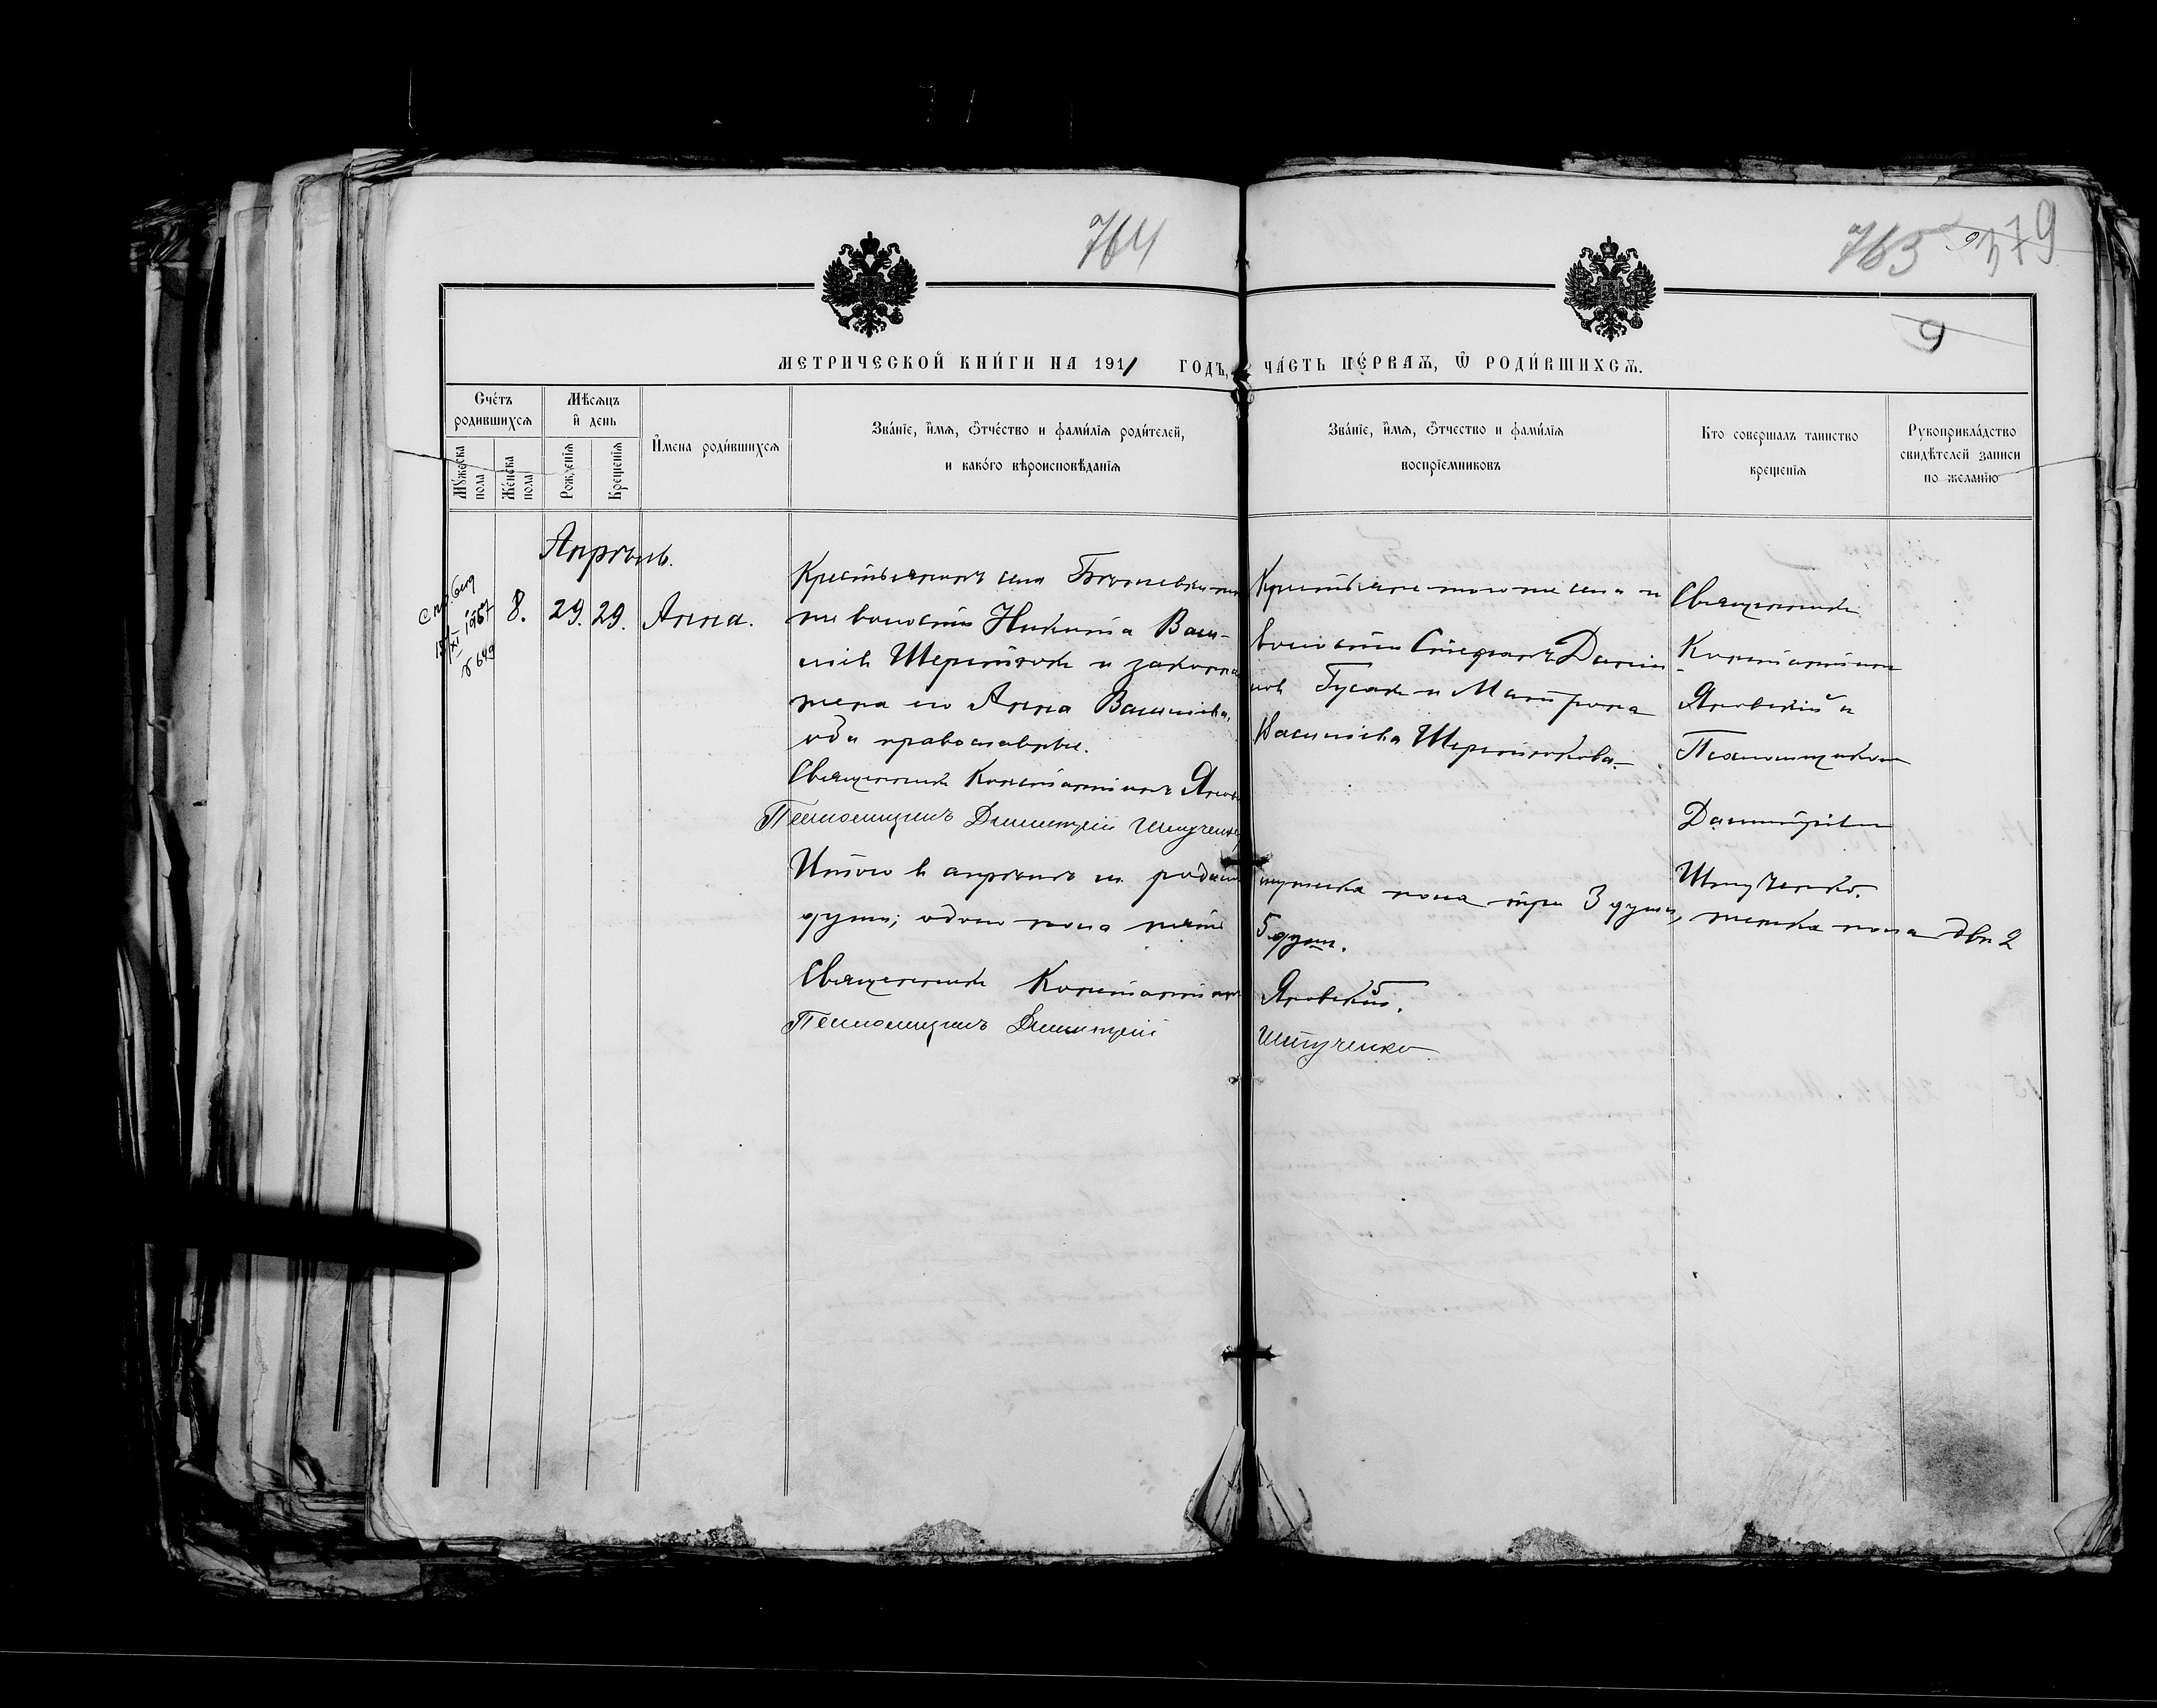 764
765 379
9
МЕТРИЧЕСКОЙ КНИ́ГИ НА 1911 ГОДЪ, ЧА́СТЬ ПЕ́РВАѦ, Ѿ РОДИ́ВШИХСѦ.
Сче́тъ родившихсѧ
Мꙋ́жеска пола
Же́нска пола
Мѣ́сѧцъ и҆ день
Рожде́нїѧ
Крещенїѧ
И҆мена роди́вшихсѧ
Зва́нїе, и҆́мѧ, ѻ҆́тче́ство и фами́лїѧ роди́телей,
и како́го вѣроисповѣ́данїѧ
Зва́нїе, и҆́мѧ, ѻ҆́тчество и фами́лїѧ
воспрїемниковъ
Кто соверша́лъ таинство
крещенїѧ
Рукоприкла́дство
свидѣ́телей записи
по жела́нїю
Апрѣль.
8. 29. 29. Анна.
Крестьянинъ села
же волости Никита Васи-
лiев Шерстюк и законная
жена его Анна Васильева,
оба православные.
Священник Константинъ
Псаломщикъ Димитрій Шпученко
Крестьяне того же села и
волости Стефанъ
нов Гусак и Матрона
Васильева Шерстюкова.
Священник
Константин
Яновский и
Псаломщик
Димитрий
Шпученко.
Итого в апрѣлѣ м. родилось мужска пола три 3 души, женска пола двѣ 2
души; обоего пола пять 5 душ.
Священник Константин Яновский.
Псаломщикъ Димитрій Шпученко